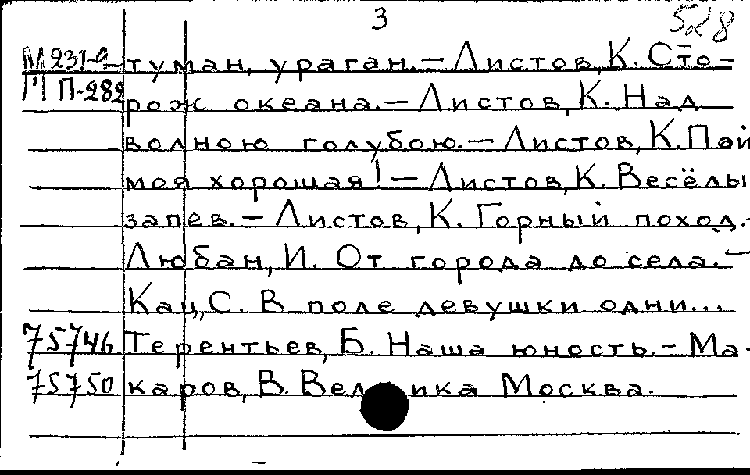 3 528
М 231-2 туман, ураган. – Листов, К. Сто-
М П-282 рож океана. – Листов, К. Над
волною голубою. – Листов, К. Пой
моя хорошая! – Листов, К. Весёлы
запев. – Листов, К. Горный поход. –
Любан, И. От города до села. –
Кац, С. В поле девушки одни...
75746 Терентьев, Б. Наша юность. – Ма-
75750 каров, В. Москва.